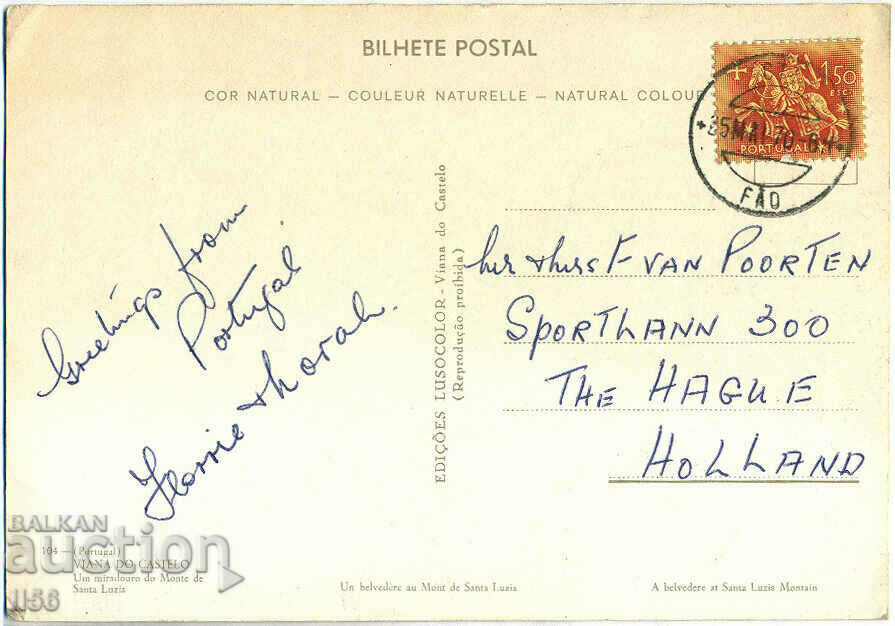 BILHETE POSTAL
COR NATURAL – COULEUR NATURELLE – NATURAL COLOUR
1.50
ESC.
PORTUGAL
25 MAI 70
FÃO
Greetings from
Portugal
Florrie & Norah.
EDIÇÕES LUSOCOLOR - Viana do Castelo
(Reprodução proibida)
Mr & Mrs F VAN POORTEN
SPORTLAAN 300
THE HAGUE
HOLLAND
104 — (Portugal)
VIANA DO CASTELO
Um miradouro do Monte de
Santa Luzia
Un belvedère au Mont de Santa Luzia
A belvedere at Santa Luzia Montain
BALKAN
auction
1156